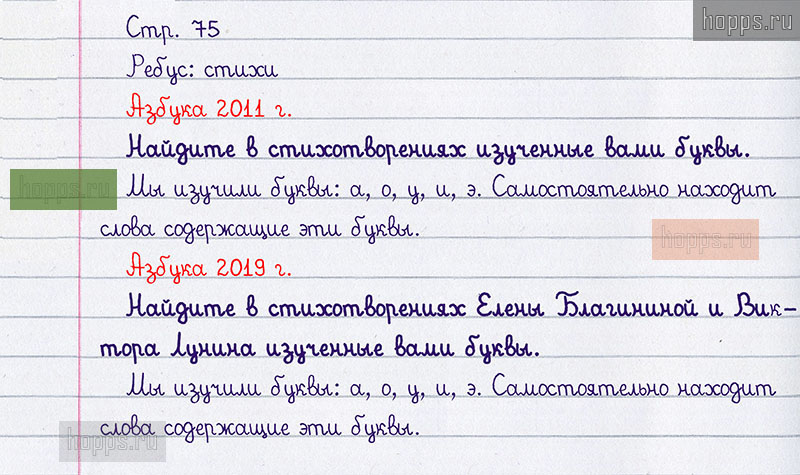 hopps.ru
Стр. 75
Ребус: стихи
Азбука 2011 г.
Найдите в стихотворениях изученные вами буквы.
hopps.ru
Мы изучили буквы: а, о, у, и, э. Самостоятельно находит
слова содержащие эти буквы.
hopps.ru
Азбука 2019 г.
Найдите в стихотворениях Елены Благининой и Вик-
тора Лунина изученные вами буквы.
Мы изучили буквы: а, о, у, и, э. Самостоятельно находит
слова содержащие эти буквы.
hopps.ru